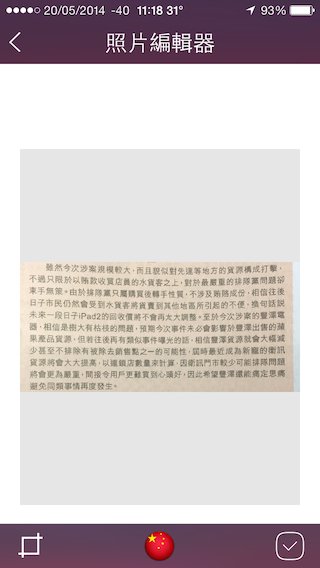 20/05/2014 -40 11:18 31° 93%
照片編輯器
雖然今次涉案規模較大，而且貌似對先達等地方的貨源構成打擊，
不過只限於以賄款收買店員的水貨客之上，對於最嚴重的排隊黨問題卻
束手無策。由於排隊黨只屬購買後轉手性質，不涉及賄賂成份，相信往後
日子市民仍然會受到水貨客將貨賣到其他地區所引起的不便，換句話說
未來一段日子iPad2的回收價將不會再太大調整。至於今次涉案的豐澤電
器，相信是樹大有枯枝的問題，預期今次事件未必會影響於豐澤出售的蘋
果產品貨源，但若往後再有類似事件曝光的話，相信豐澤貨源就會大幅減
少甚至不排除有被除去銷售點之一的可能性，屆時最近成為新寵的衛訊
貨源將會大大提高，以連鎖店數量來計算，因衛訊門市較少可能排隊問題
將會更為嚴重，間接令用戶更難買到心頭好，因此希望豐澤還能痛定思痛
避免同類事情再度發生。